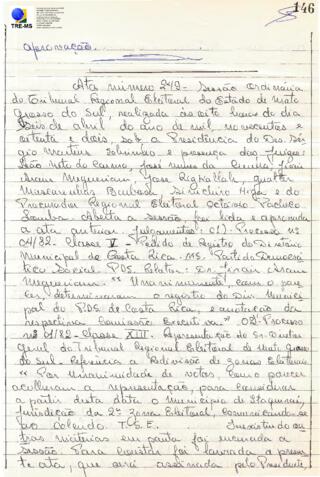 146
TRE-MS
aprovação.
Ata número 249 - Sessão Ordinária
do Tribunal Regional Eleitoral do Estado de Mato
Grosso do Sul, realizada às oito horas do dia
seis de abril do ano de mil, novecentos e
oitenta e dois, sob a Presidência do Des. Sér-
gio Martins Sobrinho e presença dos Juízes:
João Neto do Carmo, José Nunes da Cunha, Jirair
Aram Meguerian, Jose Rizkallah, Gualter
Mascarenhas Barbosa, Higa e do
Procurador Regional Eleitoral Octávio Pacheco
Lomba. Aberta a sessão, foi lida e aprovada
a ata anterior. Julgamentos: 01) Processo nº
04/82 - Classe V - Pedido de Registro do Diretório
Municipal de Costa Rica - MS. Partido Democrá-
tico Social PDS. Relator: Dr. Jirair Aram
Meguerian. "Unanimemente, com o pare-
cer, determinaram o registro do Dir. Munici-
pal do PDS de Costa Rica, e anotação da
respectiva Comissão Executiva." 02) Processo
nº 01/82 - Classe XIII - Apresentação do Sr. Diretor
Geral do Tribunal Regional Eleitoral de Mato Grosso
do Sul - referência a Revisão de zonas Eleitorais
"Por unanimidade de votos, com o parecer
acolheram a representação, para considerar
a partir desta data o município de Itaquiraí,
Jurisdição da 2ª Zona Eleitoral, comunicando-se
ao colendo T.S.E. Inexistindo ou-
tras matérias em pauta foi encerrada a
sessão. Para constar foi lavrada a presen-
te ata, que será assinada pelo Presidente,